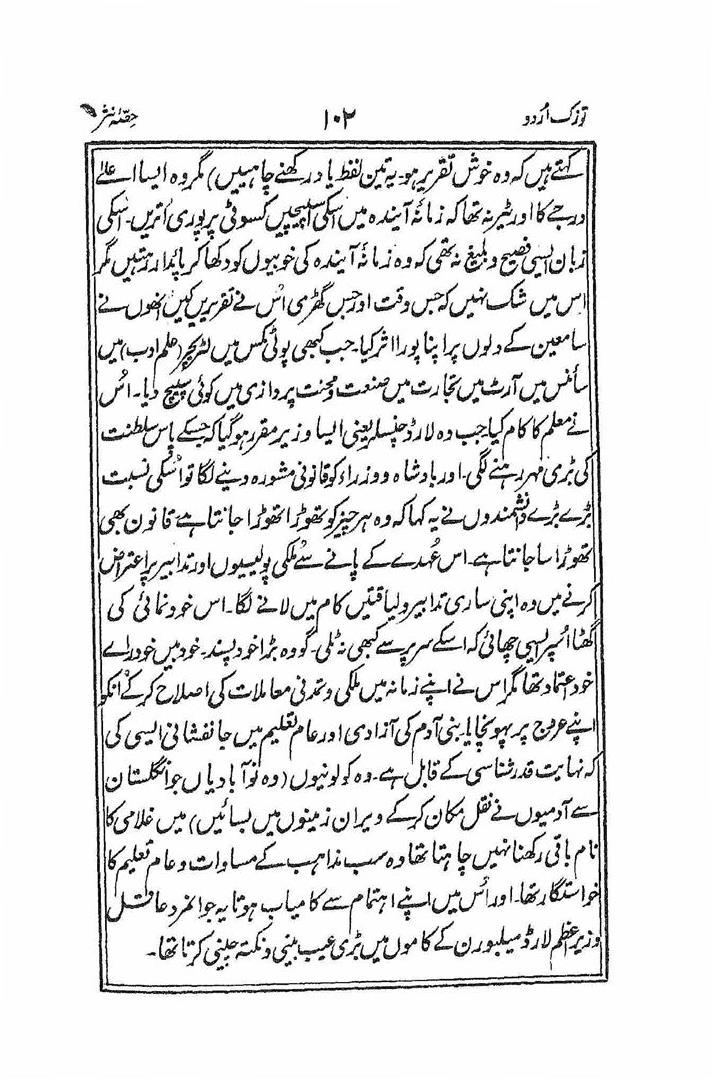 توزک اردو ۱۰۲ حصّۂ نثر
کہتے ہیں کہ وہ خوش تقریر ہو۔ یہ تین لفظ یاد رکھنے چاہییں) مگر وہ ایسا اعلےٰ
درجے کا اورٹیر نہ تھا کہ زمانۂ آیندہ میں اسکی اسپیچیں کسوٹی پر پوری اُتریں۔ اسکی
زبان ایسی فصیح و بلیغ نہ تھی کہ وہ زمانۂ آیندہ کی خوبیوں کو دکھا کر پائدار رہتیں مگر
اس میں شک نہیں کہ جس وقت اور جس گھڑی اس نے تقریریں کیں انھوں نے
سامعین کے دلوں پر اپنا پورا اثر کیا۔ جب کبھی پولی ٹکس میں لٹریچر (علم ادب) میں
سائنس میں آرٹ میں تجارت میں صنعت و محنت پردازی میں کوئی سپیچ دیا۔ اُس
نے معلم کا کام کیا جب وہ لارڈ چنسلر یعنی ایسا وزیر مقرر ہو گیا کہ جسکے پاس سلطنت
کی بڑی مہر رہنے لگی۔ اور بادشاہ و وزراء کو قانونی مشورہ دینے لگا تو اُسکی نسبت
بڑے بڑے دانشمندوں نے یہ کہا کہ وہ ہر چیز کو تھوڑا تھوڑا جانتا ہے قانون بھی
تھوڑا سا جانتا ہے۔ اس عُہدے کے پانے سے ملکی پولیسیوں اور تدابیر پر اعتراض
کرنے میں وہ اپنی ساری تدابیر ولیاقتیں کام میں لانے لگا۔ اس خود نمائی کی
گھٹا اُسپر ایسی چھائی کہ اسکے سر پر سے کبھی نہ ٹلی۔ گو وہ بڑا خود پسند۔ خود بیں خود راے
خود اعتماد تھا مگر اس نے اپنے زمانہ میں ملکی و تمدنی معاملات کی اصلاح کر کے انکو
اپنے عروج پر پہونچایا۔ بنی آدم کی آزادی اور عام تعلیم میں جانفشانی ایسی کی
کہ نہایت قدر شناسی کے قابل ہے۔ وہ کولونیوں (وہ نو آبادیاں جو انگلستان
سے آدمیوں نے نقل مکان کر کے ویران زمینوں میں بسائیں) میں غلامی کا
نام باقی رکھنا نہیں چاہتا تھا وہ سب مذاہب کے مساوات و عام تعلیم کا
خواستگار تھا۔ اور اُس میں اپنے اہتمام سے کامیاب ہوتا یہ جوانمرد عاقل
وزیر اعظم لارڈ میلبورن کے کاموں میں بڑی عیب بینی و نکتہ چینی کرتا تھا۔